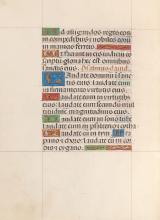 Ad alligandos reges eorum
in compedibus: et nobiles eorum
in manicis ferreis.
Ut faciant in eis iudicium con
gloria hec est omnibus
sanctis eius.
Laudate dominum in san
ctis eius: laudate eum in
firmamento virtutis eius.
Laudate eum in virtutibus
eius: laudate eum secundum multi
tudinem magnitudinis eius.
Laudate eum in sono tube:
laudate eum in psalterio et citha
ra. Laudate eum in tym
pano et choro: laudate eum in cor
dis et organo.